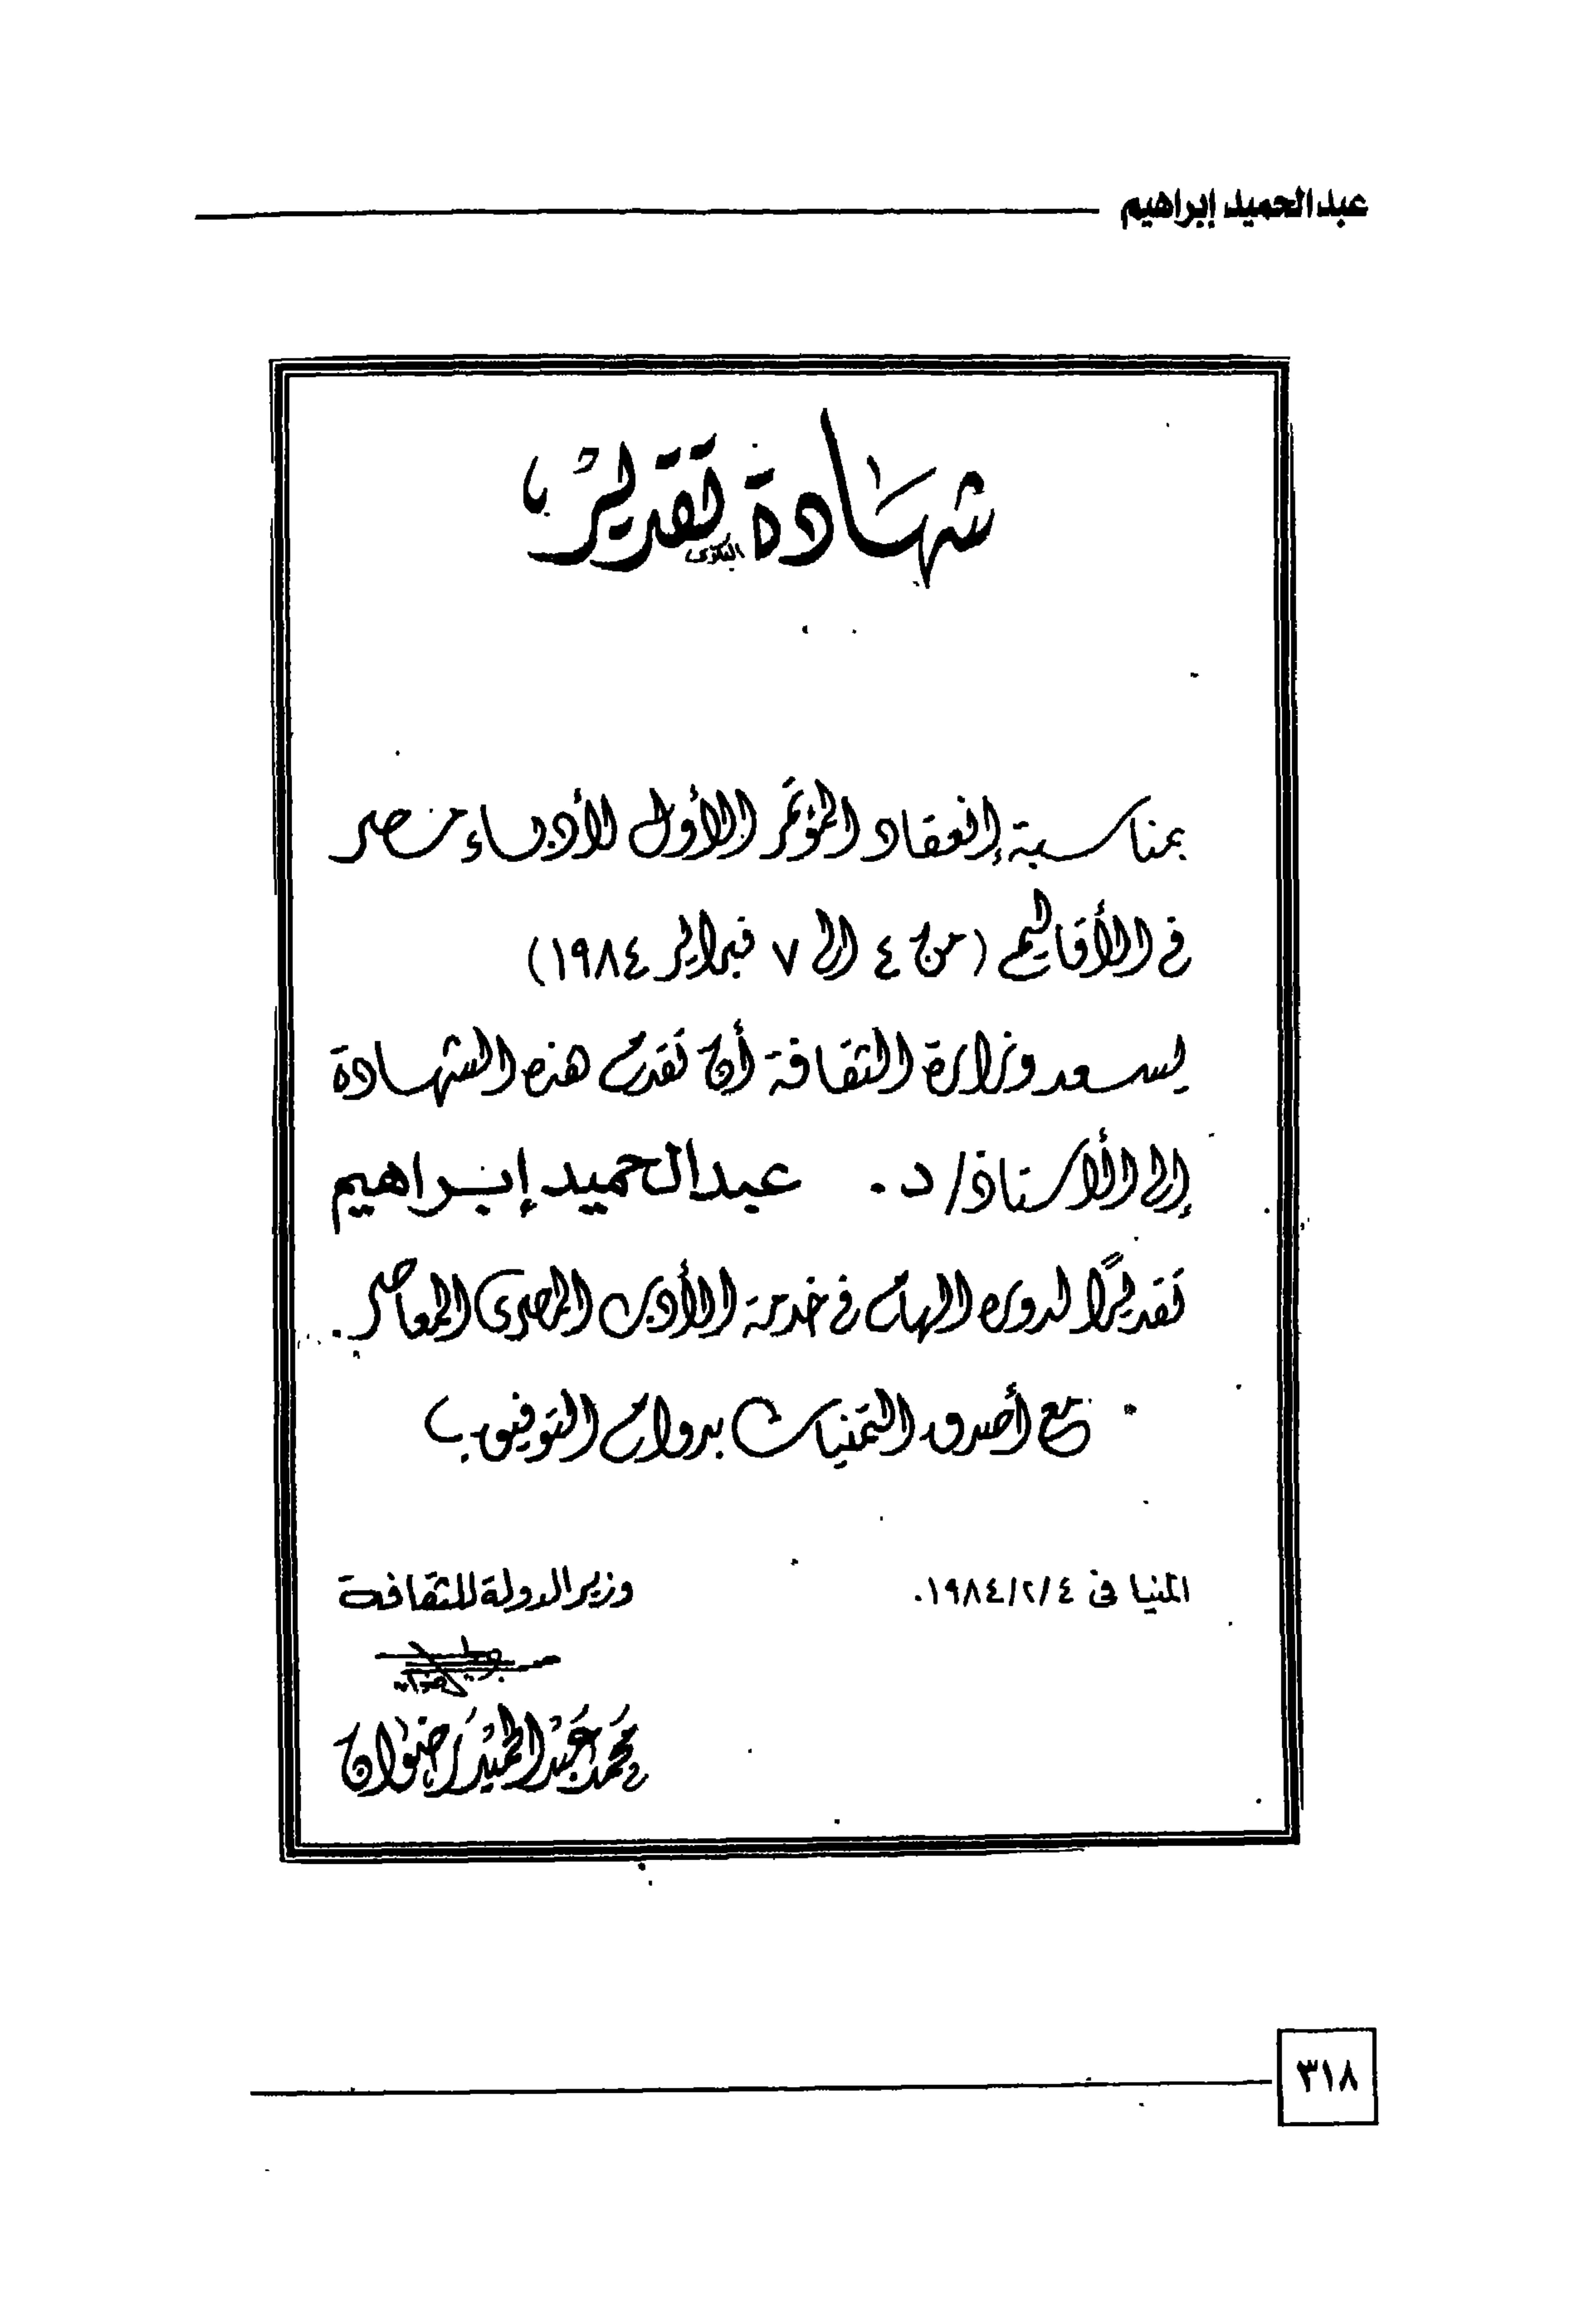 عبد الحميد إبراهيم
شهادة تقدير
بمناسبة إنعقاد المؤتمر الأول لأدباء مصر
فى الأقاليم (من ٤ الى ٧ فبراير ١٩٨٤)
يسعد وزارة الثقافة أن تقدم هذه الشهادة
إلى الأستاذ/ د. عبد الحميد إبراهيم
تقديرًا لدوره الهام فى خدمة الأدب المصرى المعاصر.
مع أصدق التمنيات بدوام التوفيق
المنيا فى ١٩٨٤/٢/٤.
وزير الدولة للثقافة
محمد عبد الحميد رضوان
٣١٨